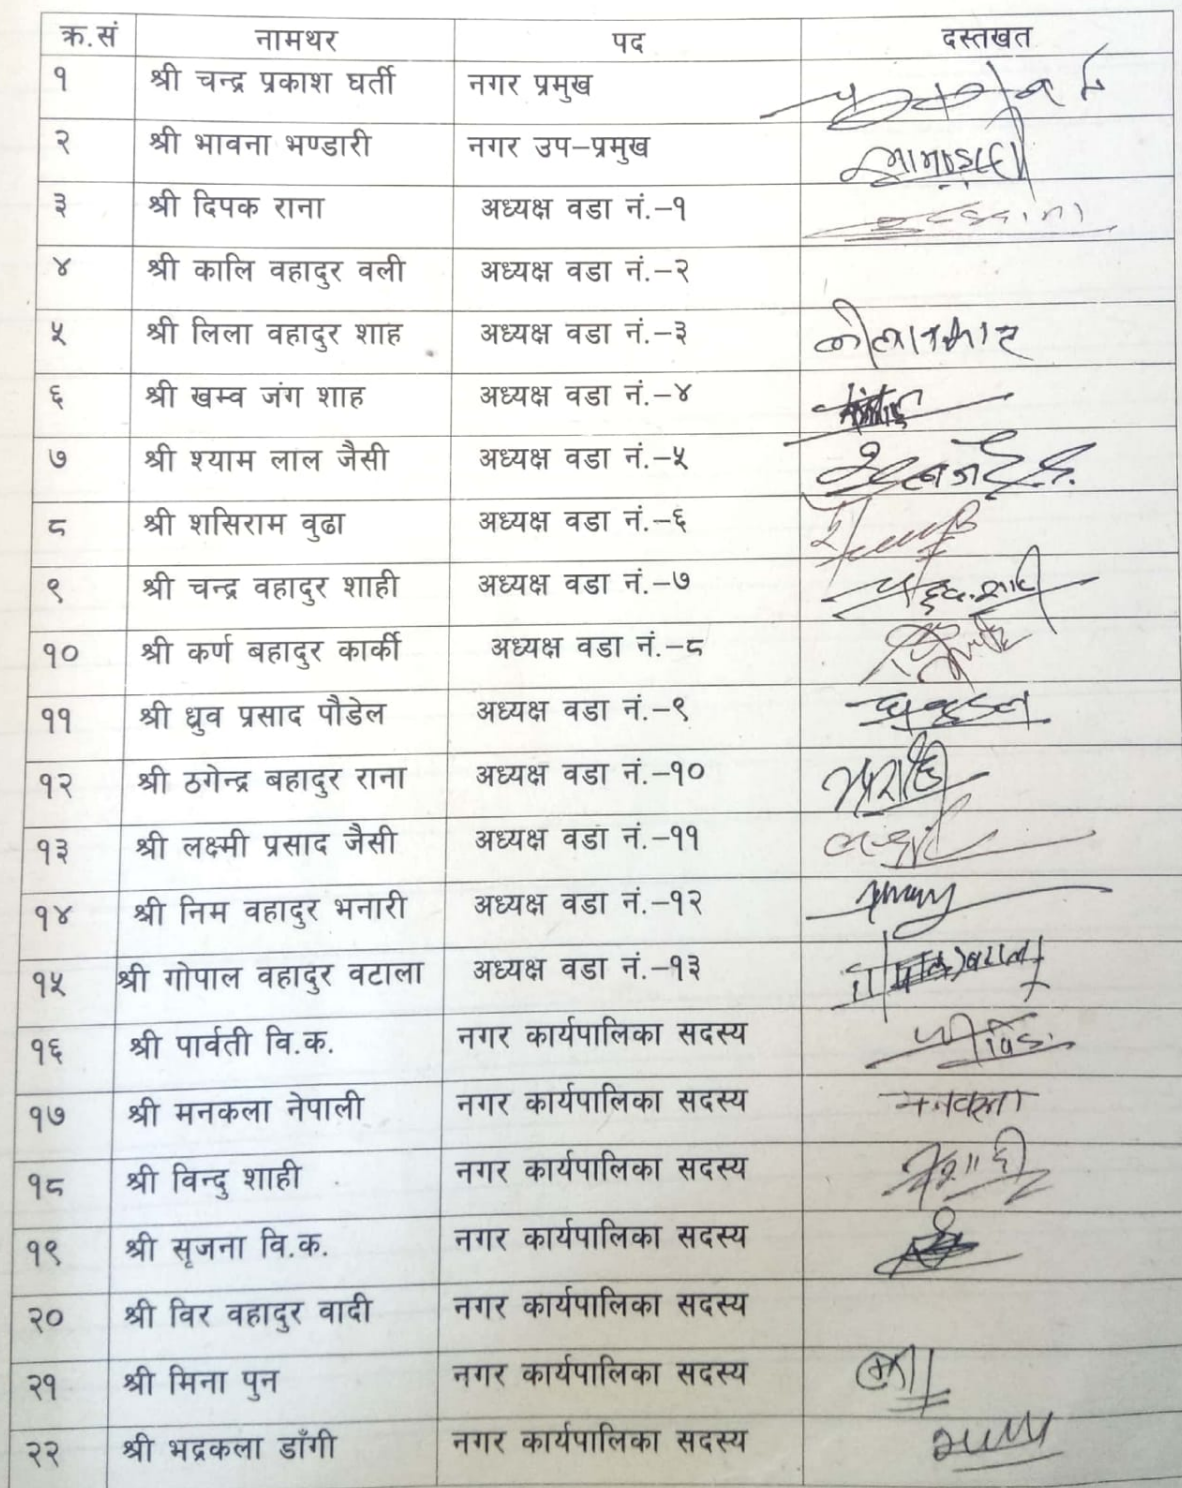 क्र.सं नामथर पद दस्तखत
१ श्री चन्द्र प्रकाश घर्ती नगर प्रमुख
२ श्री भावना भण्डारी नगर उप-प्रमुख
३ श्री दिपक राना अध्यक्ष वडा नं.-१
४ श्री कालि वहादुर वली अध्यक्ष वडा नं.-२
५ श्री लिला वहादुर शाह अध्यक्ष वडा नं.-३
६ श्री खम्व जंग शाह अध्यक्ष वडा नं.-४
७ श्री श्याम लाल जैसी अध्यक्ष वडा नं.-५
८ श्री शसिराम वुढा अध्यक्ष वडा नं.-६
९ श्री चन्द्र वहादुर शाही अध्यक्ष वडा नं.-७
१० श्री कर्ण बहादुर कार्की अध्यक्ष वडा नं.-८
११ श्री ध्रुव प्रसाद पौडेल अध्यक्ष वडा नं.-९
१२ श्री ठगेन्द्र बहादुर राना अध्यक्ष वडा नं.-१०
१३ श्री लक्ष्मी प्रसाद जैसी अध्यक्ष वडा नं.-११
१४ श्री निम वहादुर भनारी अध्यक्ष वडा नं.-१२
१५ श्री गोपाल वहादुर वटाला अध्यक्ष वडा नं.-१३
१६ श्री पार्वती वि.क. नगर कार्यपालिका सदस्य
१७ श्री मनकला नेपाली नगर कार्यपालिका सदस्य मनकला
१८ श्री विन्दु शाही नगर कार्यपालिका सदस्य
१९ श्री सृजना वि.क. नगर कार्यपालिका सदस्य
२० श्री विर वहादुर वादी नगर कार्यपालिका सदस्य
२१ श्री मिना पुन नगर कार्यपालिका सदस्य
२२ श्री भद्रकला डाँगी नगर कार्यपालिका सदस्य